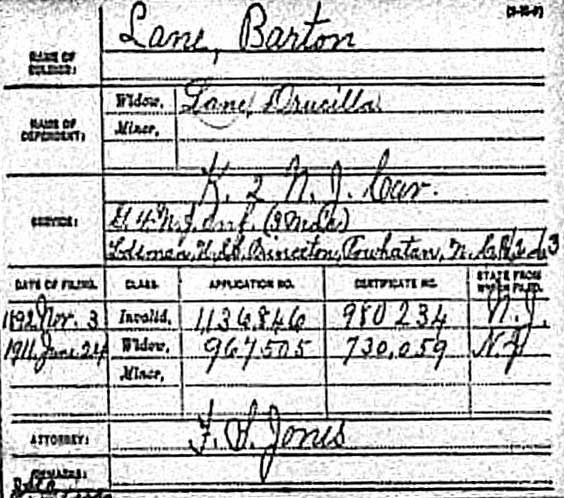 NAME OF SOLDIER: Lane, Barton
NAME OF DEPENDENT: Widow, Lane, Drucilla
Minor,
SERVICE: K. 2 N. J. Cav.
4 N. J. Inf.
U.S.S. Princeton, Powhatan, N.
DATE OF FILING. CLASS. APPLICATION NO. CERTIFICATE NO. STATE FROM WHICH FILED.
1892 Nov. 3 Invalid, 1136,846 980 234 N. J.
1911 June 24 Widow, 967,505 730,059
Minor,
ATTORNEY: Jones
REMARKS: